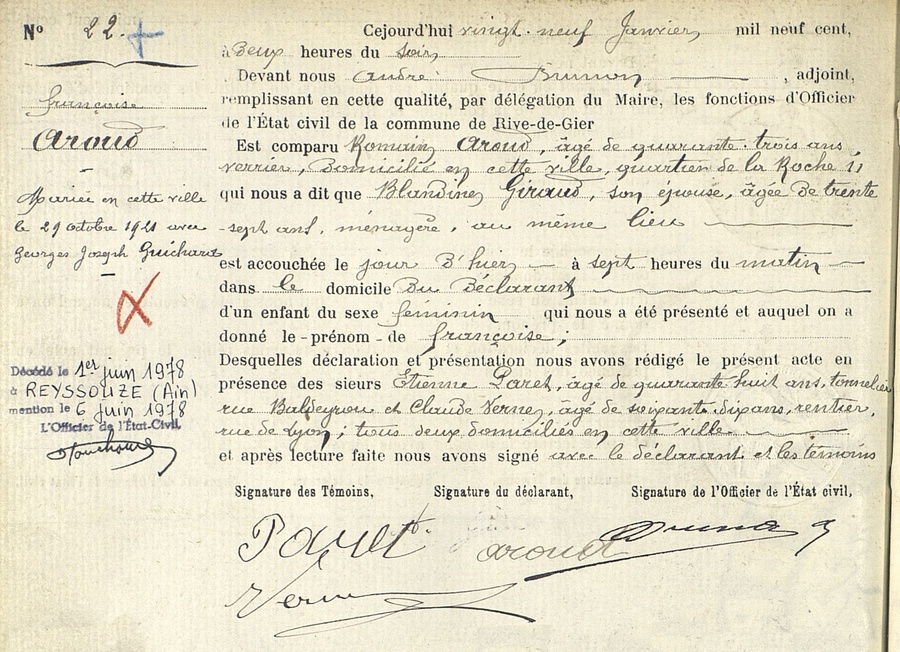 N° 22.
françoise
Aroud
Mariée en cette ville
le 29 octobre 1921 avec
Georges Joseph Guichard
Décédé le 1er juin 1978
à REYSSOUZE (Ain)
mention le 6 juin 1978
L'Officier de l'État-Civil,
Cejourd'hui vingt-neuf Janvier mil neuf cent,
à Deux heures du soir
Devant nous André Brunon, adjoint,
remplissant en cette qualité, par délégation du Maire, les fonctions d'Officier
de l'État civil de la commune de Rive-de-Gier
Est comparu Romain Aroud, âgé de quarante-trois ans,
verrier, Domicilié en cette ville, quartier de la Roche 11
qui nous a dit que Blandine Giraud, son épouse, âgée De trente
-sept ans, ménagère, au même lieu
est accouchée le jour D'hier à sept heures du matin
dans le domicile Du Déclarant
d'un enfant du sexe féminin qui nous a été présenté et auquel on a
donné le -prénom- de françoise;
Desquelles déclaration et présentation nous avons rédigé le présent acte en
présence des sieurs Etienne Paret, âgé de quarante huit ans, tonnelier
rue Baldeyrou et Claude Verney, âgé de soixante-dix ans, rentier,
rue de Lyon; tous deux domiciliés en cette ville.
et après lecture faite nous avons signé avec le déclarant et les témoins
Signature des Témoins, Signature du déclarant, Signature de l'Officier de l'État civil,
Paret Aroud Brunon
Verney